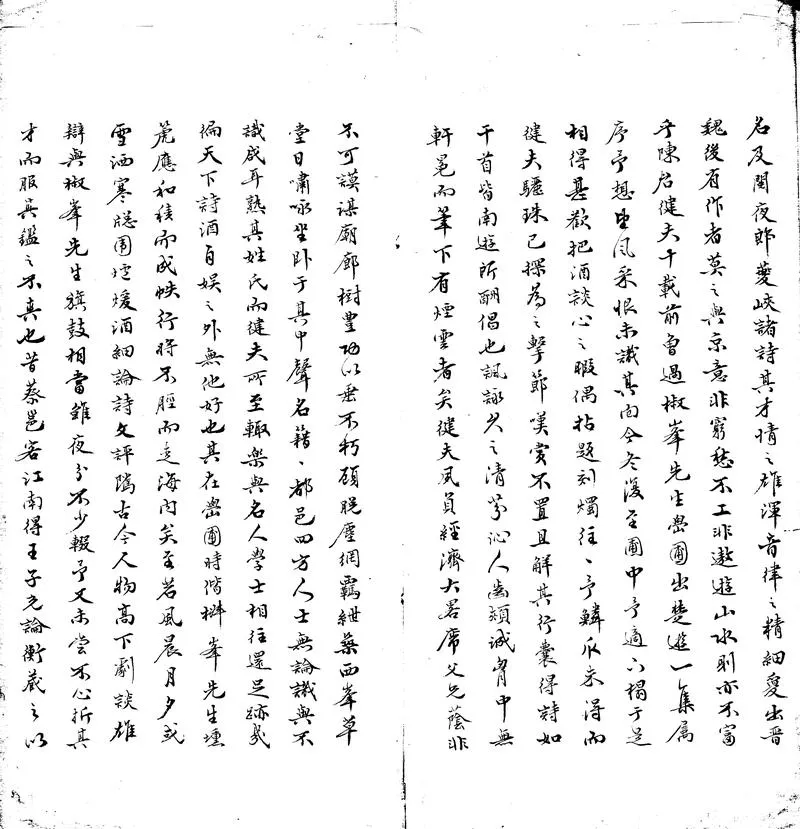 名及聞夜郎夔峽諸詩其才情之雄渾音律之精細夐出晋
魏後有作者莫之與京意非窮愁不工非遨遊山水則亦不富
乎陳君健夫千載前曾過椒峯先生嶨圃出楚遊一集属
序予想望風采恨未識其面今冬復至圃中予適下榻于是
相得甚歡把酒談心之暇偶拈題刻燭往〻予鱗爪未得而
健夫驪珠已探為之擊節嘆賞不置且解其行囊得詩如
干首皆南遊所酬倡也諷詠久之清芬沁人齒頰誠胷中無
軒冕而筆下有煙雲者矣健夫夙負經濟大畧席父兄蔭非
不可謨謀廟廊樹豊功以垂不朽顧脱塵網覊紲葉西峯草
堂日嘯咏坐卧于其中聲名藉〻都邑四方人士無論識與不
識咸耳熟其姓氏而健夫所至輙樂與名人學士相往還足跡㡬
徧天下詩酒自娱之外無他好也其在嶨圃時偕椒峯先生壎
箎應和積而成帙行將不脛而走海内矣至若風晨月夕或
雪洒寒牕圍爐煖酒細論詩文評隲古今人物高下劇談雄
辯與椒峯先生旗鼓相當雖夜分不少輟予又未嘗不心折其
才而服其鑑之不真也昔蔡邕客江南得王子充論衡蔵之以